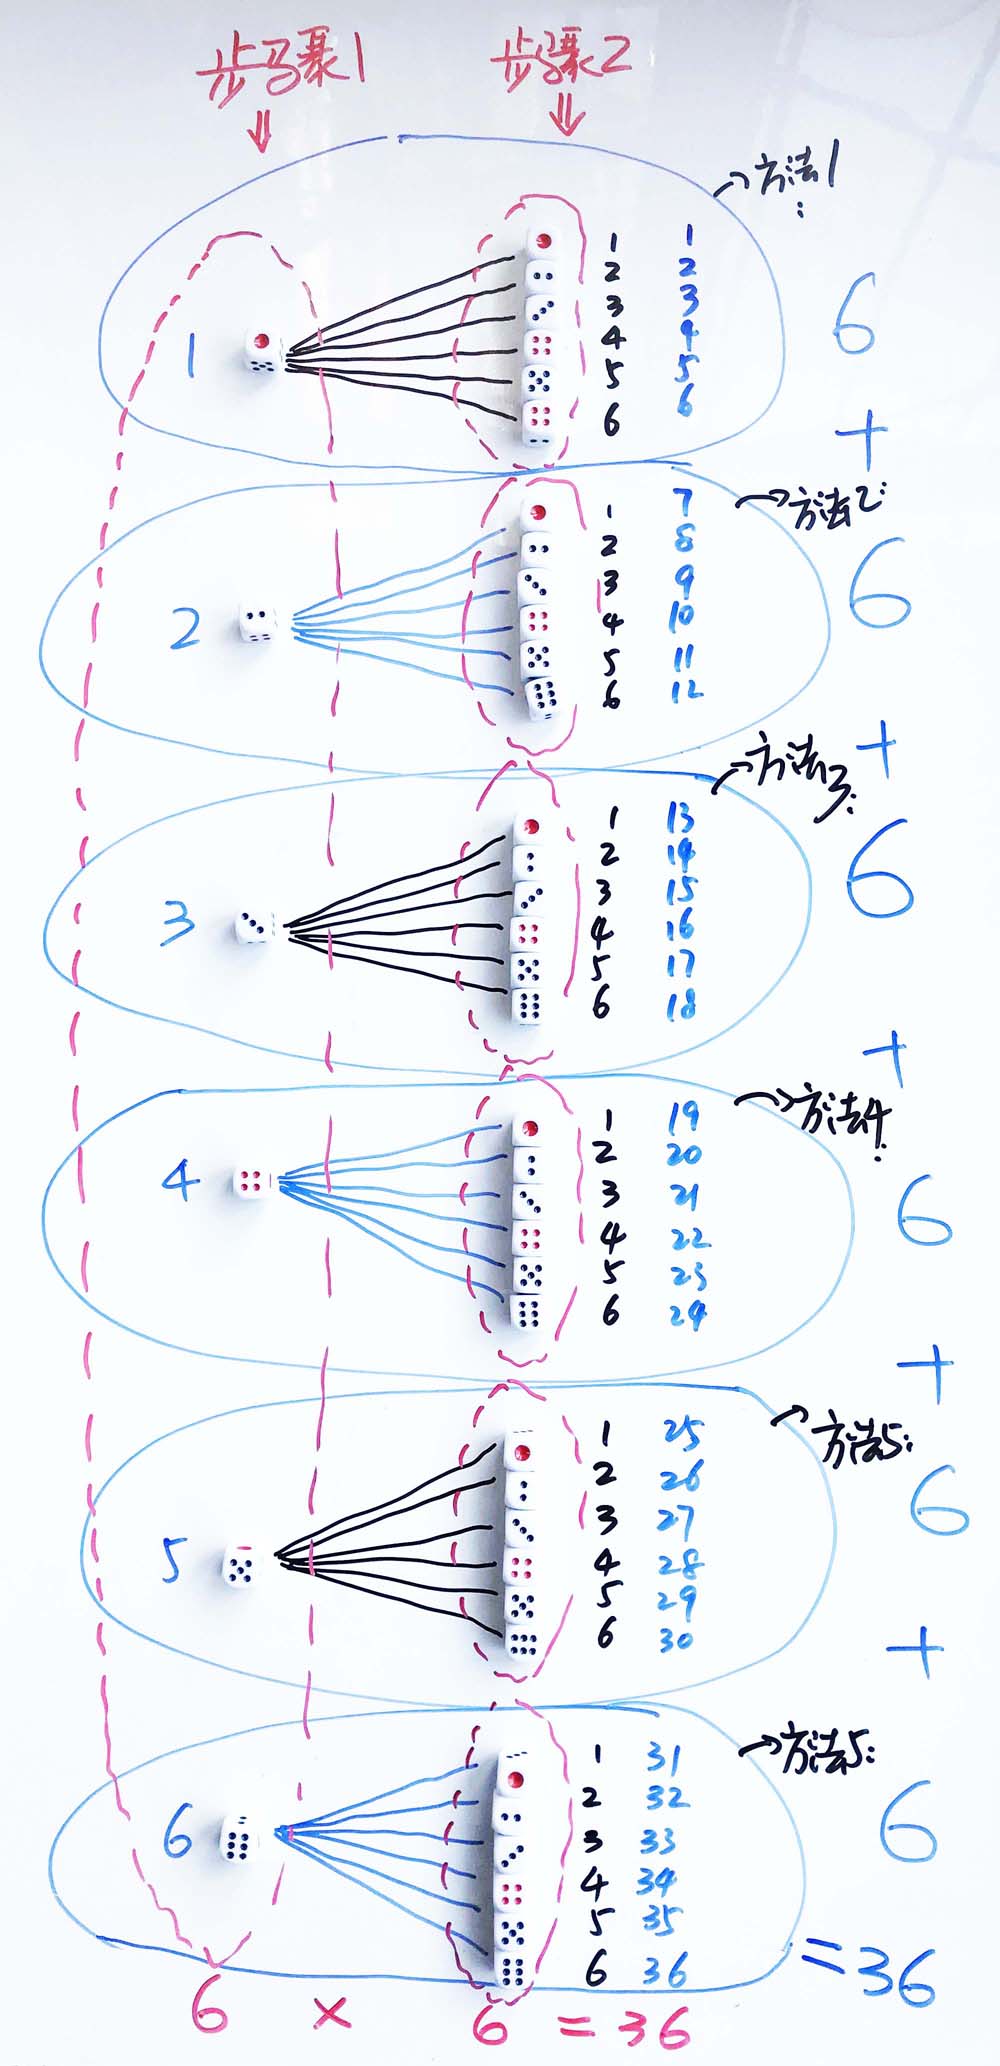 步骤1 步骤2
方法1:
1
1 1
2 2
3 3
4 4
5 5
6 6
6
+
方法2:
2
1 7
2 8
3 9
4 10
5 11
6 12
6
+
方法3:
3
1 13
2 14
3 15
4 16
5 17
6 18
6
+
方法4:
4
1 19
2 20
3 21
4 22
5 23
6 24
6
+
方法5:
5
1 25
2 26
3 27
4 28
5 29
6 30
6
+
方法5:
6
1 31
2 32
3 33
4 34
5 35
6 36
6
=36
6 × 6 = 36